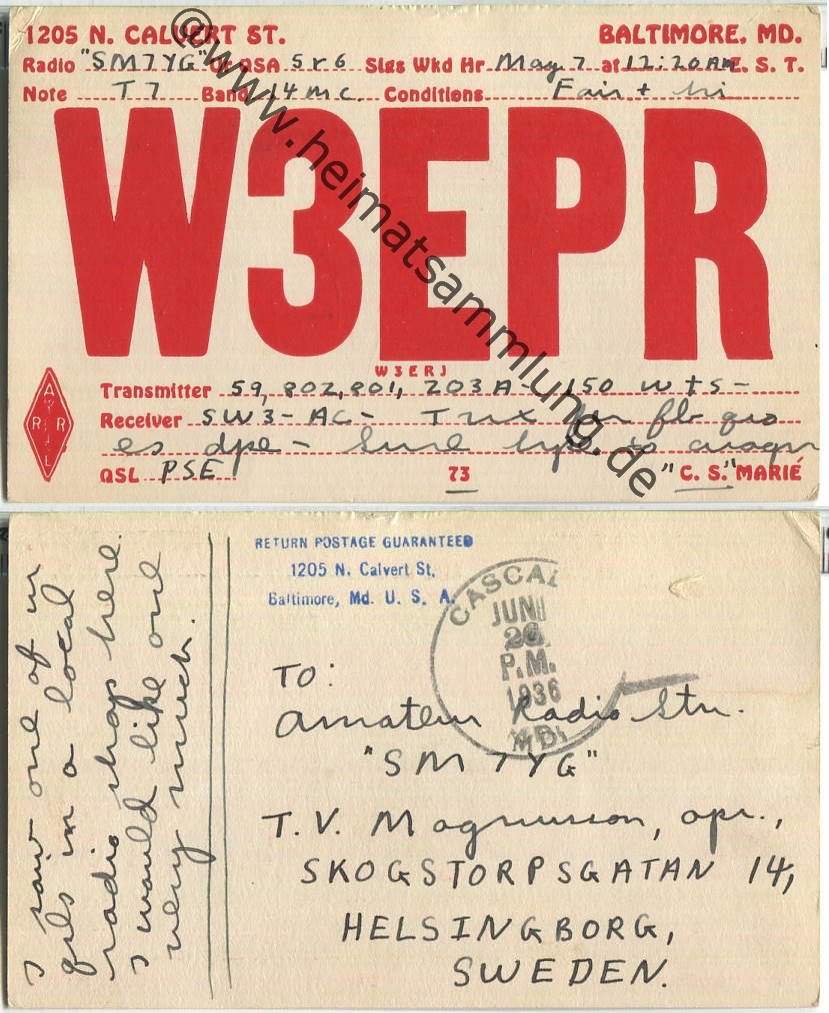 1205 N. CALVERT ST. BALTIMORE. MD.
Radio "SM7YG" Ur QSA 5 r 6 Sigs Wkd Hr May 7 at 12:20 AM E. S. T.
Note T7 Band 14 mc. Conditions Fair + hi
W3EPR
W3ERJ
Transmitter 59, 802, 801, 203A - 150 wts -
Receiver SW3 - AC - Tnx for fb qso
es dpe - Sure hpe to cuagn
A
R R
L
QSL PSE 73 "C. S." MARIÉ
©www.heimatsammlung.de
RETURN POSTAGE GUARANTEED
1205 N. Calvert St.
Baltimore, Md. U. S. A.
CASCAD
JUN
26
P.M.
1936
MD.
TO:
Amateur Radio Stn.
"SM7YG"
T. V. Magnusson, opr.,
SKOGSTORPSGATAN 14,
HELSINGBORG,
SWEDEN.
I saw one of ur
qsls in a local
radio shop here.
I would like one
very much.